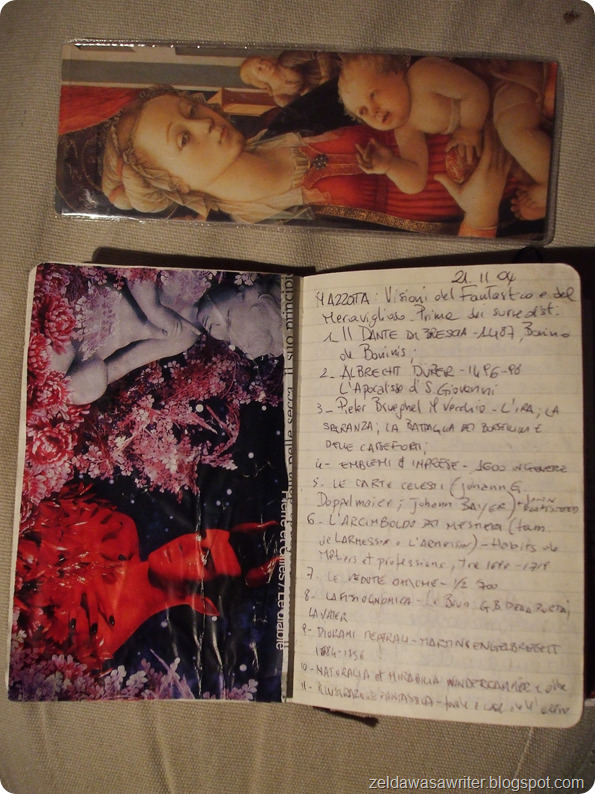 nelle secca il suo principio
Pierre et Gilles / Le diable
21.11.04
MAZZOTTA: Visioni del Fantastico e del
Meraviglioso. Prima dei surrealisti:
1_ Il DANTE DI BRESCIA - 1487, Bonino
de Boninis;
2_ ALBRECHT DURER - 1496-98
L'Apocalisse di S. Giovanni
3_ Pieter Brueghel il Vecchio - L'IRA; LA
SPERANZA; LA BATTAGLIA DEI BORSELLINI E
DELLE CASSEFORTI;
4_ EMBLEMI E IMPRESE - 1600 IN GENERE
5_ LE CARTE CELESTI (Johann G.
Doppelmaier; Johann BAYER)
6_ L'ARCIMBOLDO DEI MESTIERI (fam.
de LARMESSIN o L'ARMESSIN) - Habits de
Métiers et professions,
7_ LE VEDUTE OTTICHE - 1/2 700
8_ LA FISIOGNOMICA - Le Brun G.B. DELLA PORTA;
LAVATER
9_ DIORAMI TEATRALI - MARTIN ENGELBRECHT
1684-1756
10_ NATURALIA et MIRABILIA WUNDERKAMMER e
11_ ILLUSTRAZIONE FANTASTICA -
zeldawasawriter.blogspot.com